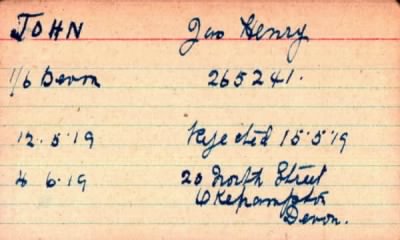 JOHN Jas Henry
1/6 Devon 265241.
12.5.19 Rejected 15.5.19
4 6.19 20 North Street
Okehampton
Devon.